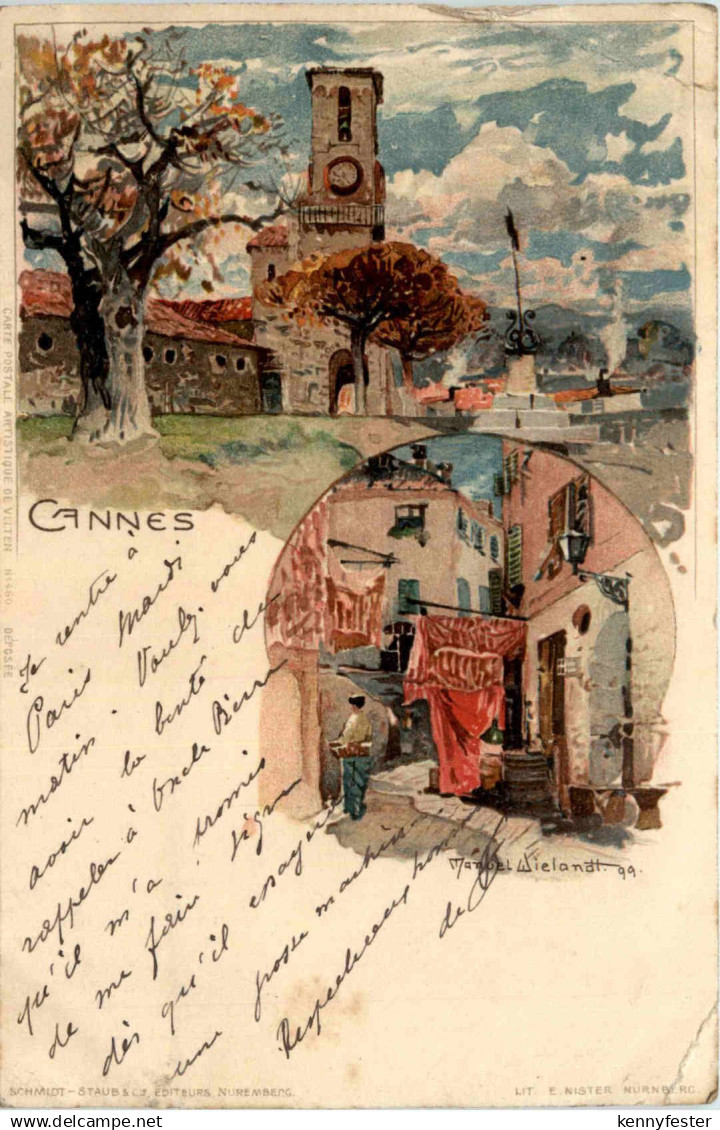 CARTE POSTALE ARTISTIQUE DE VELTEN No 460 DÉPOSÉE
CANNES
Je rentre à
Paris Mardi
matin. Voulez vous
avoir la bonté de
rappeler à Oncle Pierre
qu'il m'a promis
de me faire signe
dès qu'il essayera
une grosse machine
Respectueux hommages
de
Manuel Wielandt. 99.
SCHMIDT-STAUB & Co, EDITEURS, NUREMBERG.
LIT. E. NISTER NÜRNBERG.
kennyfester